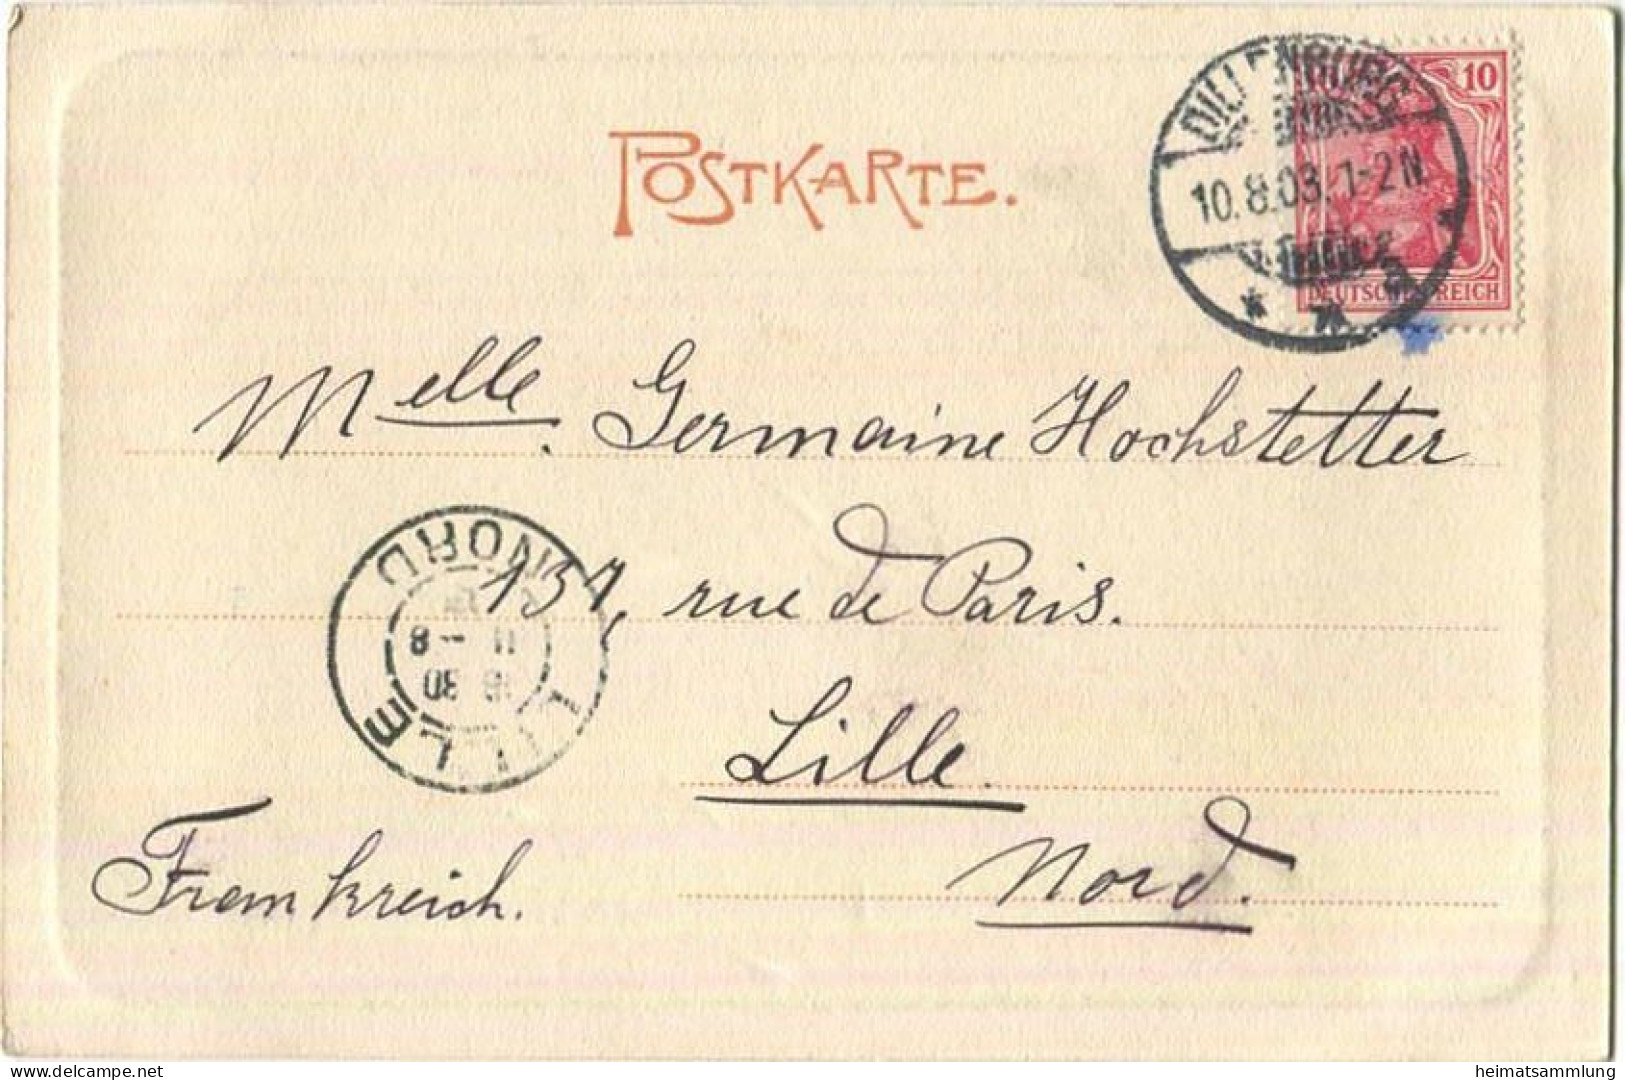 POSTKARTE.
10
DILLENBURG
10.8.03.1-2N.
DEUTSCHES REICH
Melle. Germaine Hochstetter
137, rue de Paris.
LILLE NORD
8 - 11
Lille.
Frankreich.
Nord.
www.delcampe.net
heimatsammlung